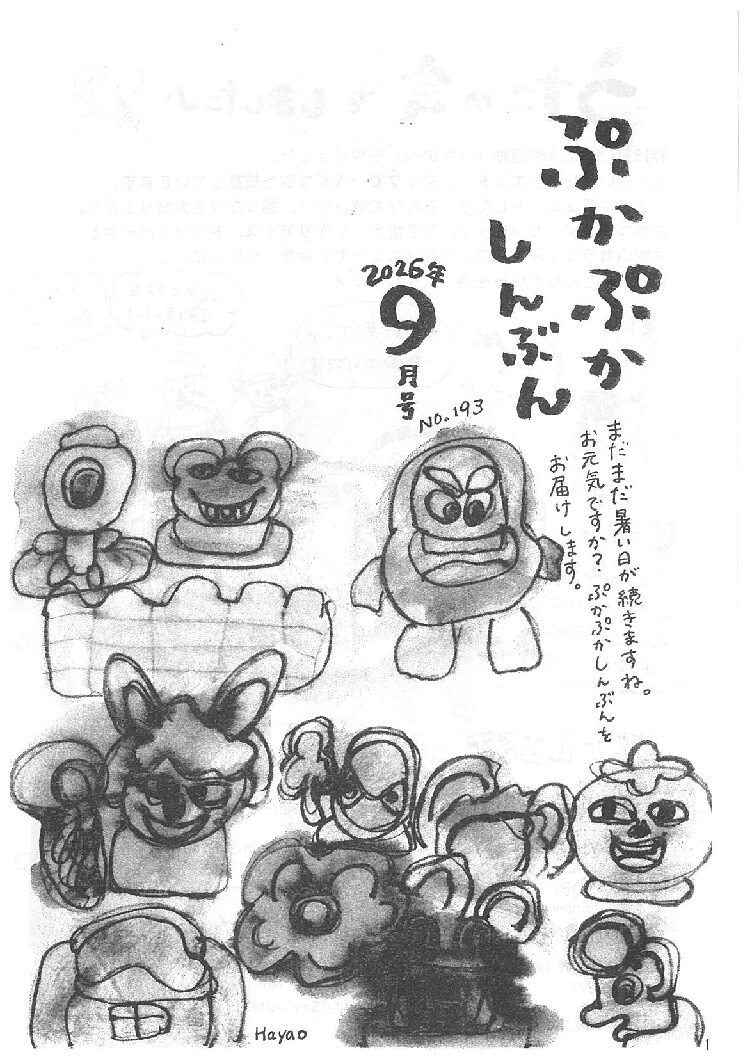 ぷかぷか
しんぶん
2026年
9
月号
NO.193
まだまだ暑い日が続きますね。
お元気ですか？ぷかぷかしんぶんを
お届けします。
Hayao
1